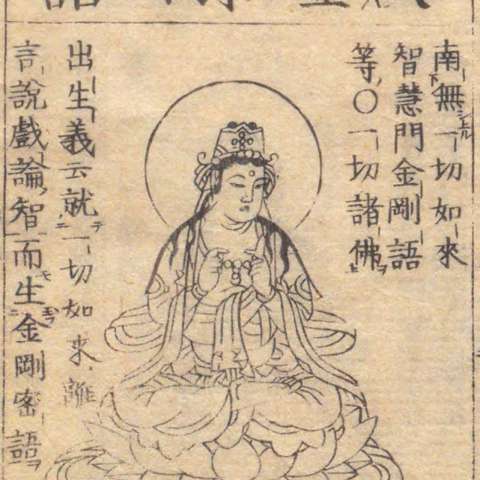 南無一切如來
智慧門金剛語
等〇一切諸佛
出生義云就一切如來離
言說戲論智而生金剛密語